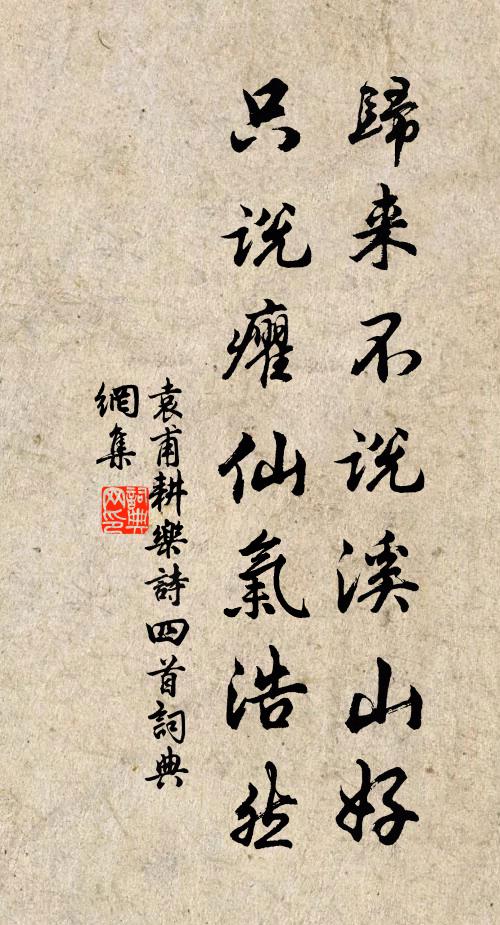 歸来不说溪山好
只说癯仙氣浩然
袁甫耕樂詩四首詞典
網集
詞典
网印